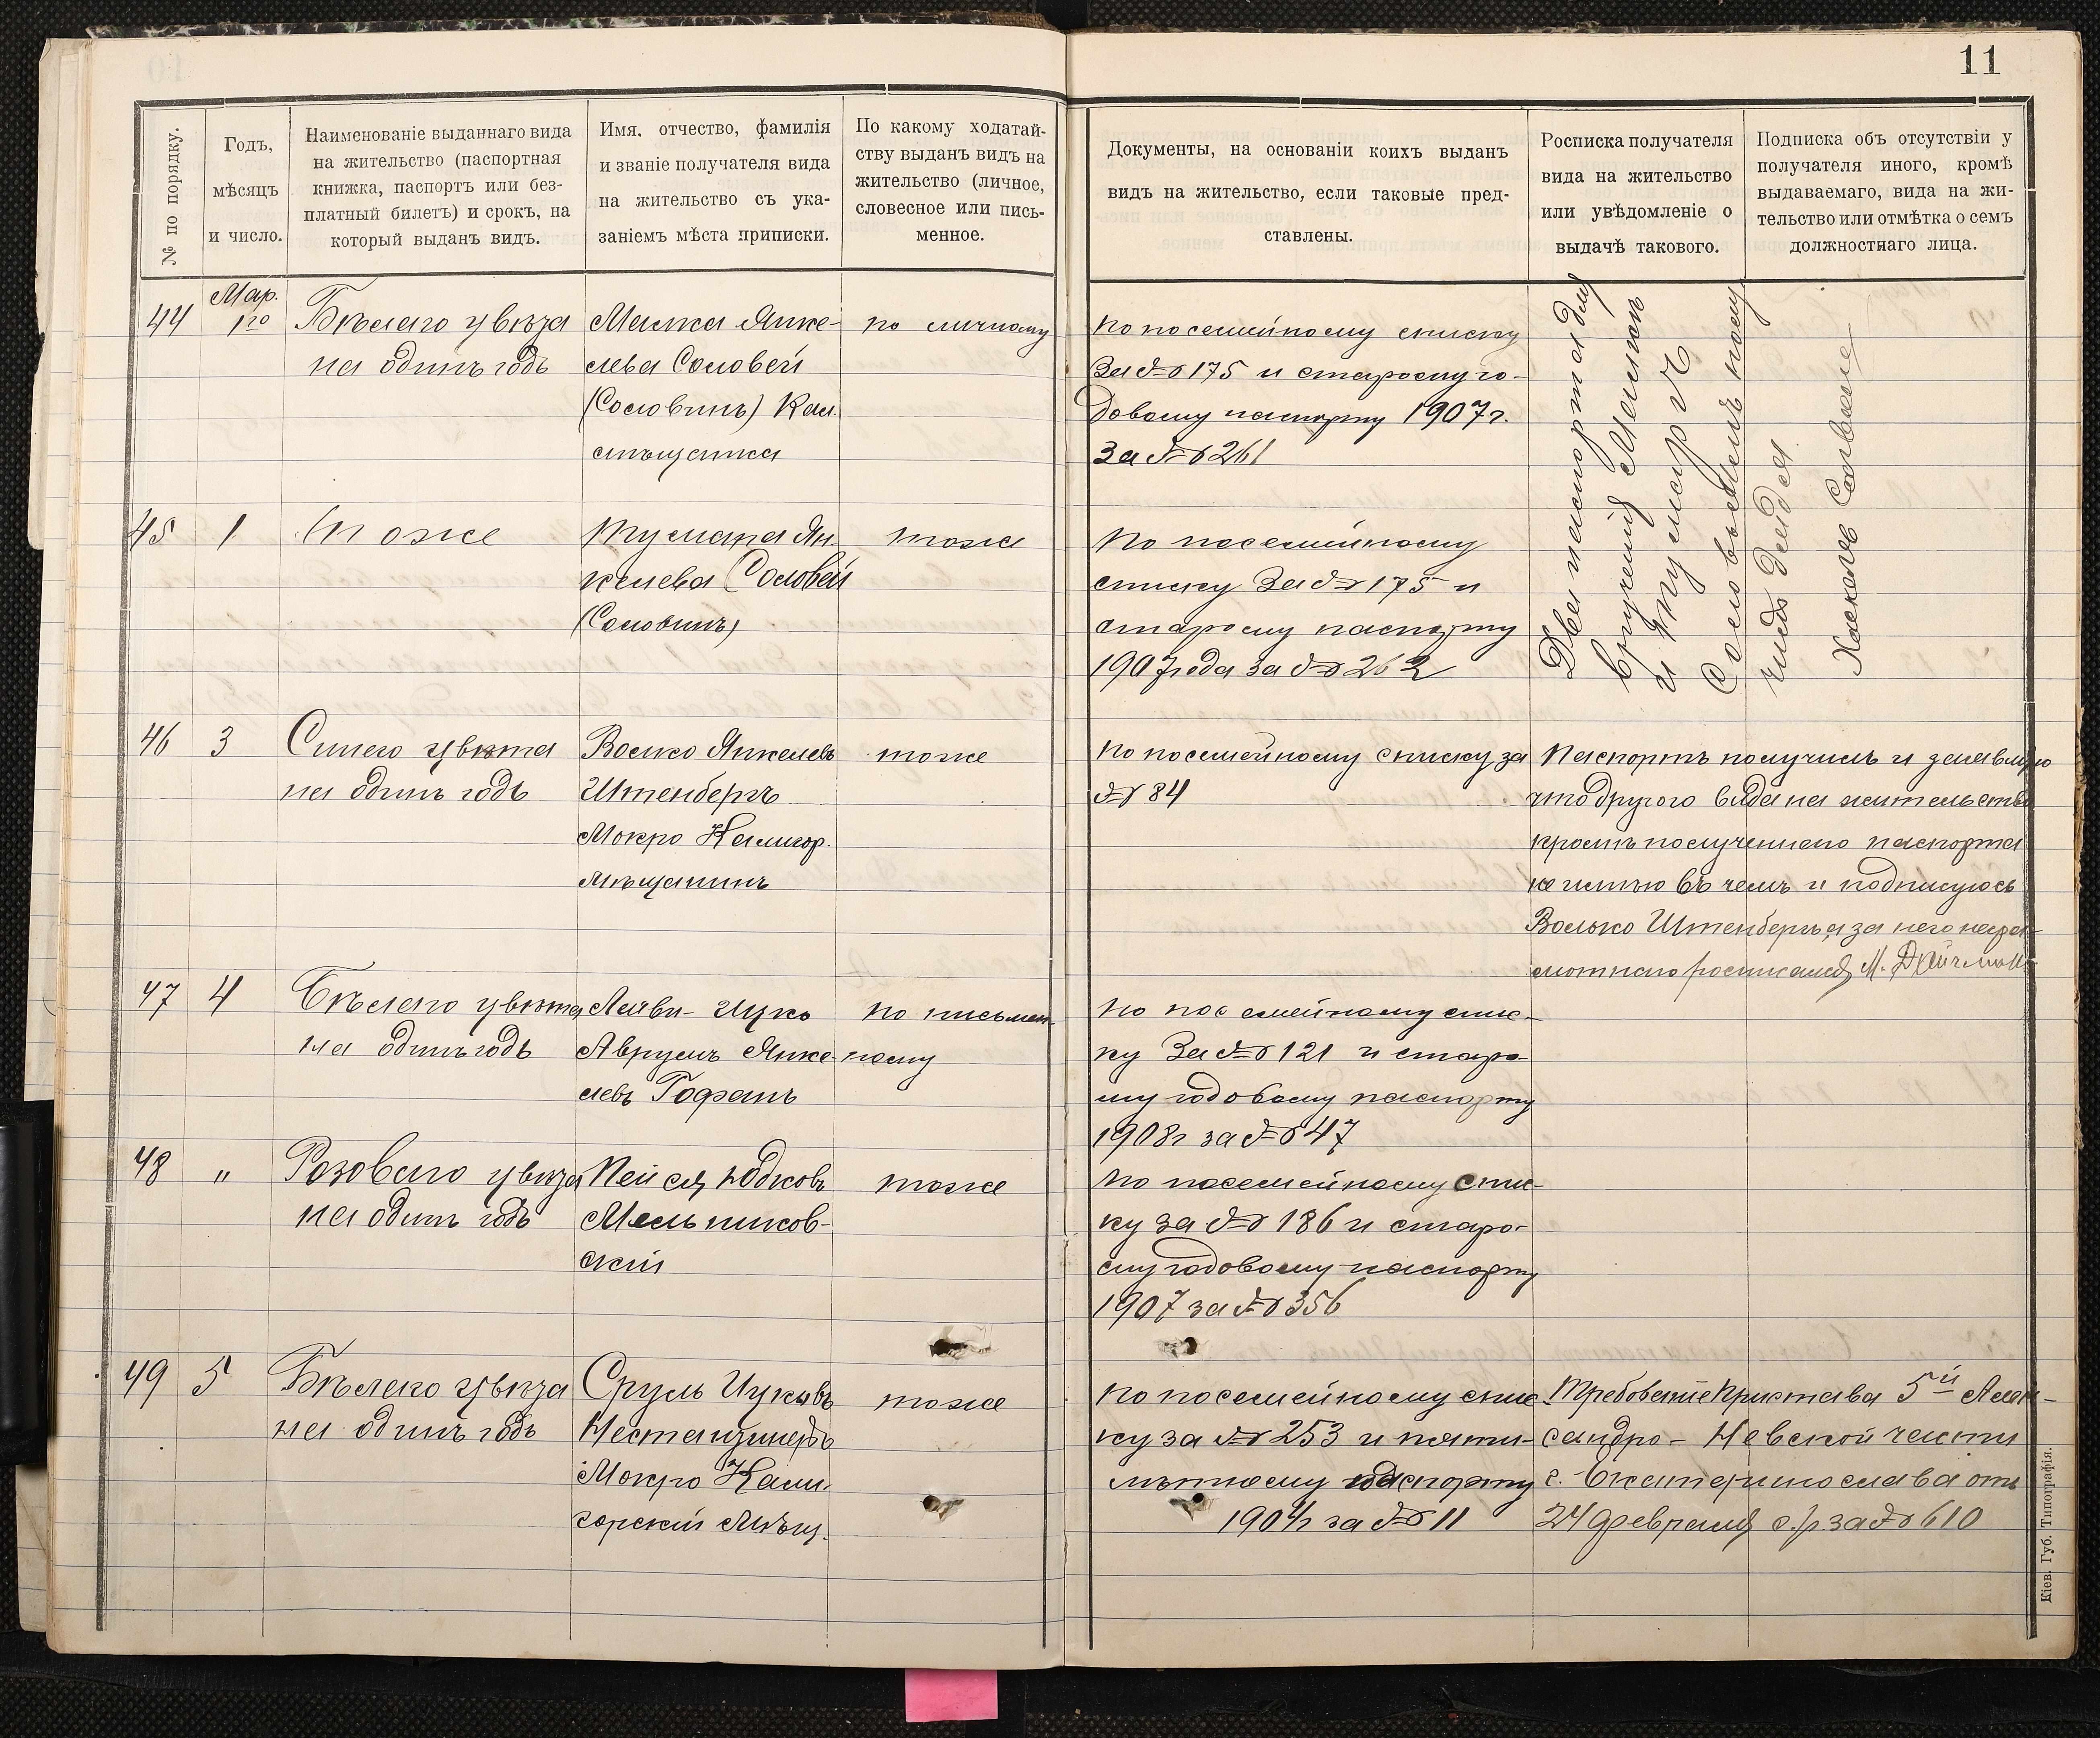 11
№ по порядку.
Годъ,
мѣсяцъ
и число.
Наименованіе выданнаго вида
на жительство (паспортная
книжка, паспортъ или без-
платный билетъ) и срокъ, на
который выданъ видъ.
Имя, отчество, фамилія
и званіе получателя вида
на жительство съ ука-
заніемъ мѣста приписки.
По какому ходатай-
ству выданъ видъ на
жительство (личное,
словесное или пись-
менное.
Документы, на основаніи коихъ выданъ
видъ на жительство, если таковые пред-
ставлены.
Росписка получателя
вида на жительство
или увѣдомленіе о
выдачѣ такового.
Подписка объ отсутствіи у
получателя иного, кромѣ
выдаваемаго, вида на жи-
тельство или отмѣтка о семъ
должностнаго лица.
44
Мар.
1го
Бѣлаго цвѣта
на одинъ годъ
Малка Янке-
лева Соловей
(Соловинъ) Кал.
мѣщанка
по личному
По посемейному списку
За № 175 и старому го-
довому паспорту 1907 г.
За № 261
Два паспорта для
врученія Малкѣ
и
Соловьемъ
Соловьев
45
1
Тоже
Ян-
келева Соловей
(Соловинъ)
тоже
По посемейному
списку За № 175 и
старому паспорту
1907 года за № 262
46
3
Синего цвѣта
на одинъ годъ
Волко Янкелевъ
Штенбергъ
Мокро Калигор.
мѣщанинъ
тоже
По посемейному списку за
№ 84
Паспортъ получилъ и заявляю
что другого вида на жительство
кромѣ полученнаго паспорта
не имѣю въ чемъ и подписуюсь
Волько Штенбергъ, а за него негра-
мотнаго росписался М.
47
4
Бѣлаго цвѣта
на одинъ годъ
Лейви-Ицко
Аврумъ Янке-
левъ Гофанъ
по письмен-
ному
По посемейному спис-
ку За № 121 и старо-
му годовому паспорту
1908 г за № 47
48
"
Розоваго цвѣта
на одинъ годъ
Пейся Юдковъ
Мельников-
скій
тоже
По посемейному спис-
ку за № 186 и старо-
му годовому паспорту
1907 за № 356
49
5
Бѣлаго цвѣта
на одинъ годъ
Сруль Ицковъ
Мокро Кали-
горскій Мѣщ.
тоже
По посемейному спис-
ку за № 253 и пяти-
лѣтнему паспорту
1904 г за № 11
Требованіе Пристава 5й Алек-
сандро-Невской части
г. Екатеринослава отъ
24 февраля с.г. за № 610
Кіев. Губ. Типографія.